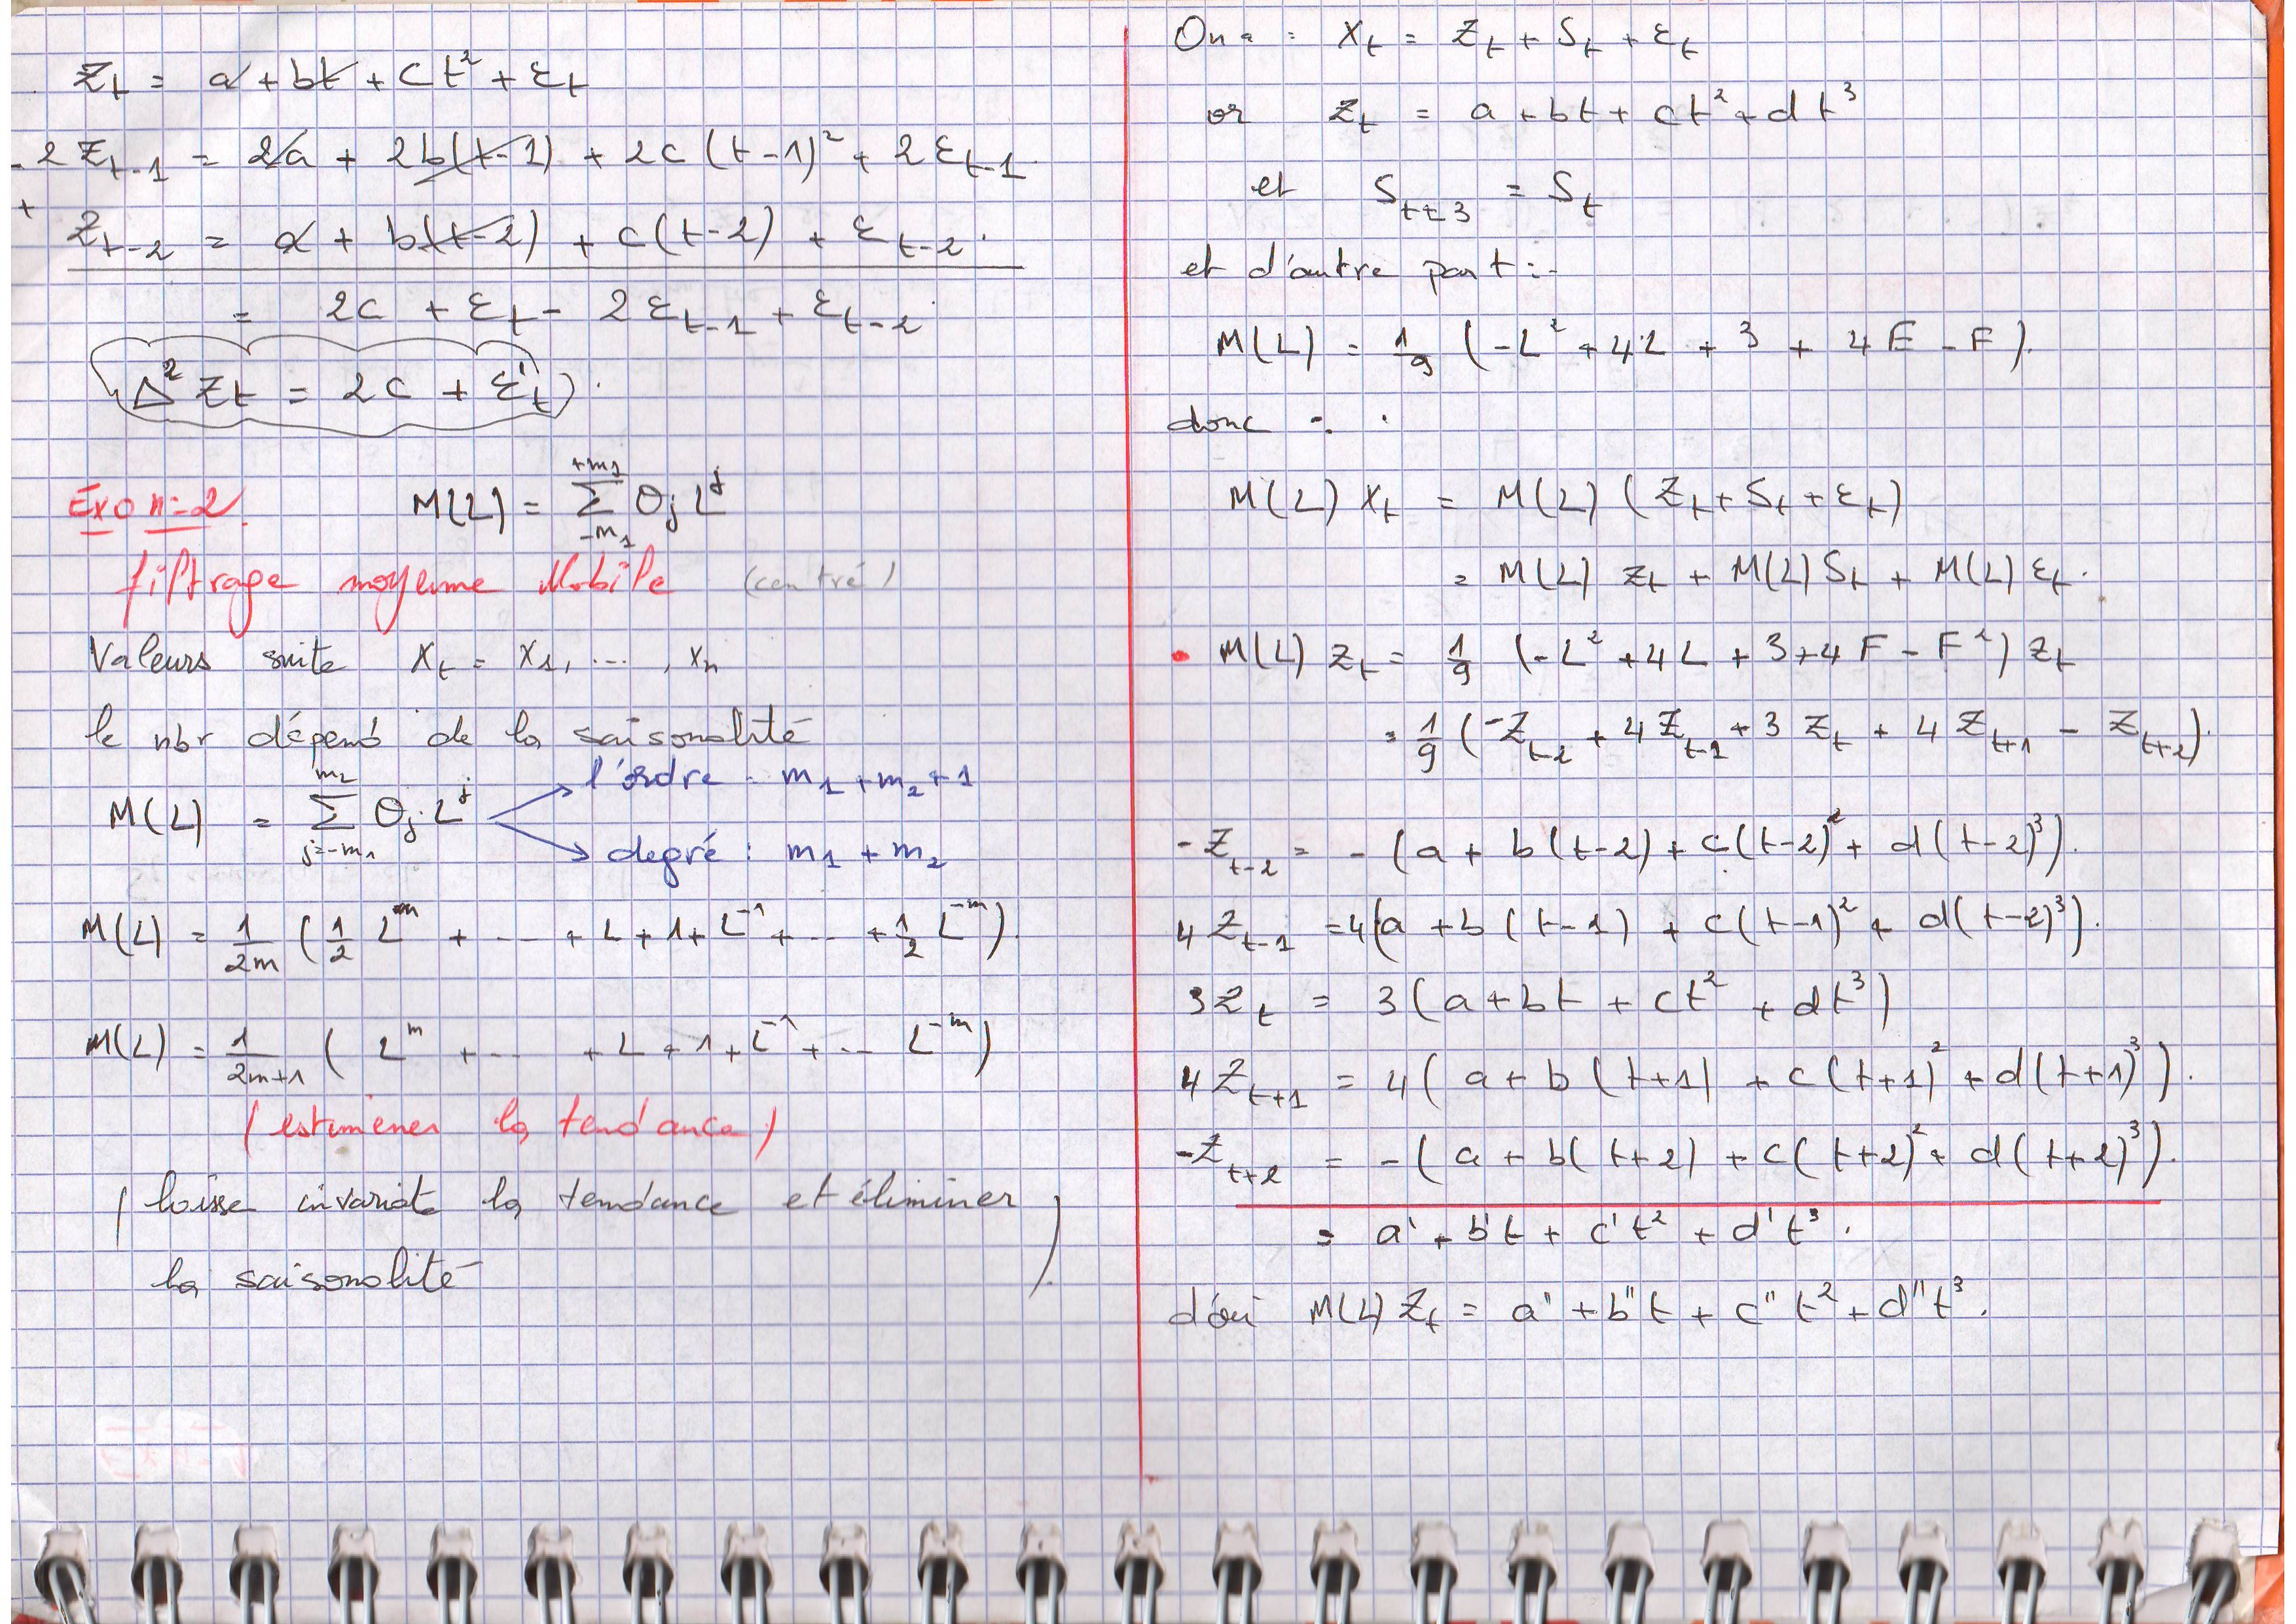 Z_t = a + bt + ct² + ε_t
- 2 Z_{t-1} = 2a + 2b(t-1) + 2c (t-1)² + 2 ε_{t-1}
+ Z_{t-2} = a + b(t-2) + c(t-2) + ε_{t-2}.
= 2c + ε_t - 2 ε_{t-1} + ε_{t-2}
Δ² Z_t = 2c + ε'_t.
Exo n=2 M(L) = Σ_{-m_1}^{+m_1} θ_j L^j
filtrage moyenne Mobile (centré)
Valeurs suite X_t = X_1, ..., X_n
le nbr dépend de la saisonalité
M(L) = Σ_{j=-m_1}^{m_2} θ_j L^j
l'ordre : m_1 + m_2 + 1
degré : m_1 + m_2
M(L) = 1/2m (1/2 L^m + ... + L + 1 + L^{-1} + ... + 1/2 L^{-m}).
M(L) = 1/2m+1 ( L^m + ... + L + 1 + L^{-1} + ... L^{-m})
(estimener la tendance)
( laisse invariate la tendance et éliminer
la saisonalité )
On a : X_t = Z_t + S_t + ε_t
or Z_t = a + bt + ct² + dt³
et S_{t+3} = S_t
et d'autre part :-
M(L) = 1/9 (-L² + 4L + 3 + 4F - F).
donc :
M(L) X_t = M(L) (Z_t + S_t + ε_t)
= M(L) Z_t + M(L) S_t + M(L) ε_t.
• M(L) Z_t = 1/9 (-L² + 4L + 3 + 4F - F²) Z_t
= 1/9 (-Z_{t-2} + 4 Z_{t-1} + 3 Z_t + 4 Z_{t+1} - Z_{t+2}).
-Z_{t-2} = - (a + b(t-2) + c(t-2)² + d(t-2)³).
4 Z_{t-1} = 4(a + b(t-1) + c(t-1)² + d(t-2)³).
3 Z_t = 3 (a + bt + ct² + dt³)
4 Z_{t+1} = 4( a + b(t+1) + c(t+1)² + d(t+1)³).
-Z_{t+2} = -( a + b(t+2) + c(t+2)² + d(t+2)³).
= a' + b't + c't² + d't³.
d'où M(L) Z_t = a'' + b''t + c''t² + d''t³.